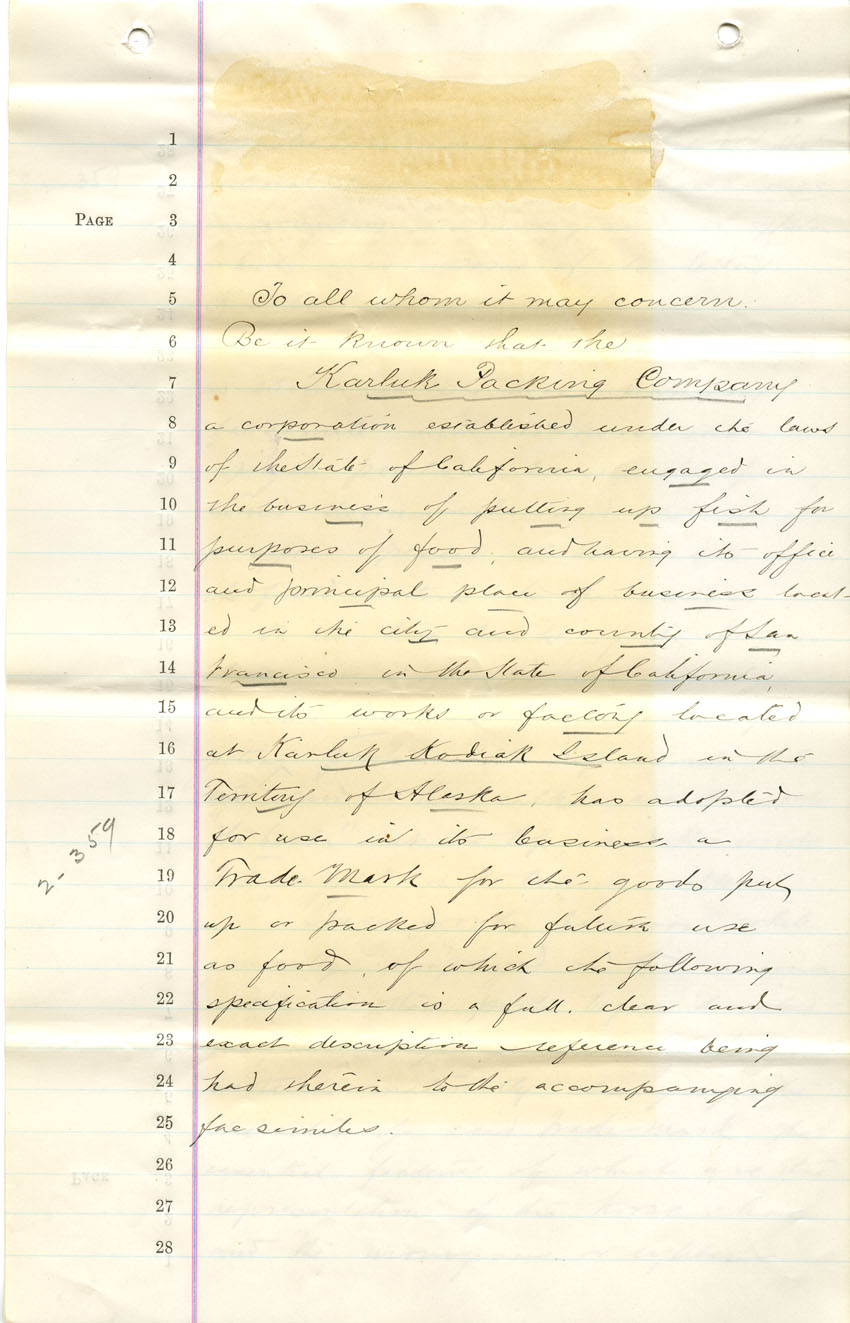 1
2
PAGE 3
4
5 To all whom it may concern.
6 Be it known that the
7 Karluk Packing Company
8 a corporation established under the laws
9 of the State of California, engaged in
10 the business of putting up fish for
11 purposes of food, and having its office
12 and principal place of business locat-
13 ed in the city and county of San
14 Francisco in the State of California,
15 and its works or factory located
16 at Karluk Kodiak Island in the
17 Territory of Alaska, has adopted
18 for use in its business a
2-359
19 Trade-Mark for the goods put
20 up or packed for future use
21 as food, of which the following
22 specification is a full. clear and
23 exact description reference being
24 had therein to the accompanying
25 facsimiles.
26
27
28